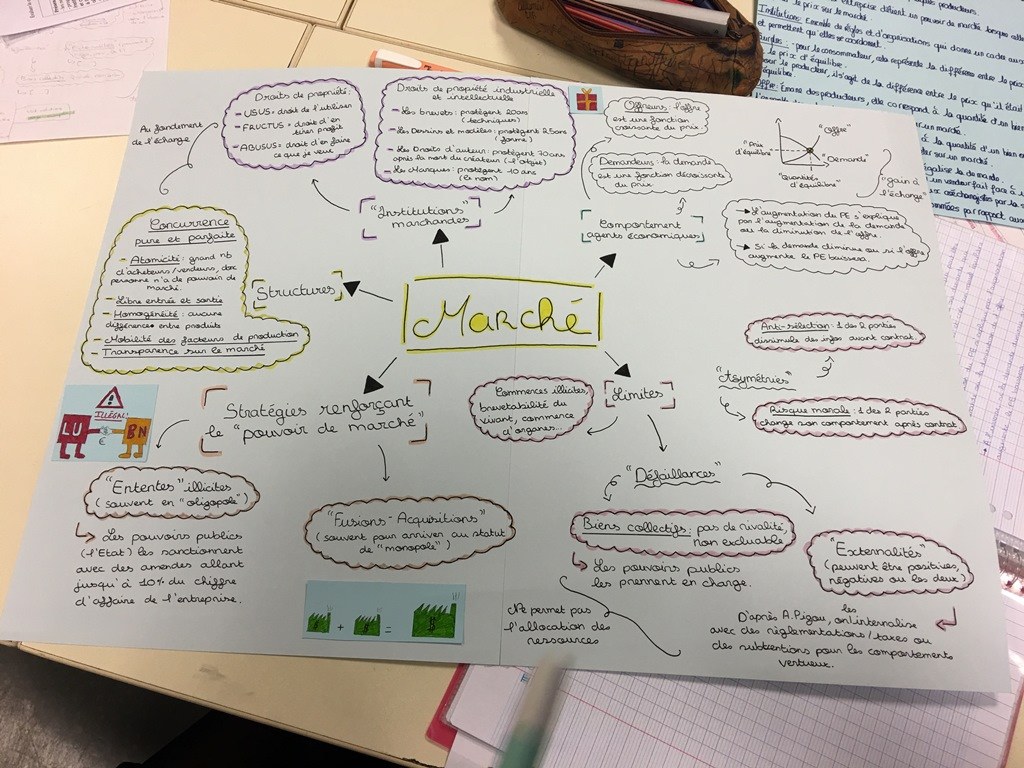 Marché
Au fondement
de l'échange
Droits de propriété:
- USUS = droit de l'utiliser
- FRUCTUS = droit d'en
tirer profit
- ABUSUS = droit d'en faire
ce que je veux
Droits de propriété industrielle
et intellectuelle
- Les brevets: protègent 20 ans
(techniques)
- Les Dessins et modèles: protègent 25 ans
(forme)
- Les Droits d'auteur: protègent 70 ans
après la mort du créateur (l'objet)
- Les Marques: protègent 10 ans
(le nom)
"Institutions
marchandes"
Offreurs: l'offre
est une fonction
croissante du prix.
Demandeurs: la demande
est une fonction décroissante
du prix.
Comportement
agents économiques
"Prix
d'équilibre"
"Offre"
"Demande"
"Quantités
d'équilibre"
"gain à
l'échange"
L'augmentation du PE s'explique
par l'augmentation de la demande
ou la diminution de l'offre.
Si la demande diminue ou si l'offre
augmente le PE baissera.
Concurrence
pure et parfaite
- Atomicité: grand nb
d'acheteurs/vendeurs, donc
personne n'a de pouvoir de
marché.
- Libre entrée et sortie
- Homogénéité: aucune
différence entre produits
- Mobilité des facteurs de production
- Transparence sur le marché
Structures
Stratégies renforçant
le "pouvoir de marché"
ILLÉGAL!
LU
$
€
BN
"Ententes" illicites
(souvent en "oligopole")
Les pouvoirs publics
(l'Etat) les sanctionnent
avec des amendes allant
jusqu'à 10% du chiffre
d'affaire de l'entreprise.
"Fusions-Acquisitions"
(souvent pour arriver au statut
de "monopole")
+
=
$
Limites
Commerces illicites,
brevetabilité du
vivant, commerce
d'organes...
"Asymétries"
Anti-sélection: 1 des 2 parties
dissimule des infos avant contrat.
Risque morale: 1 des 2 parties
change son comportement après contrat
"Défaillances"
Biens collectifs: pas de rivalité,
non excluable
Les pouvoirs publics
les prennent en charge.
Ne permet pas
l'allocation des
ressources
"Externalités"
(peuvent être positives,
négatives ou les deux)
D'après A. Pigou, on les internalise
avec des règlementations/taxes ou
des subventions pour les comportements
vertueux.